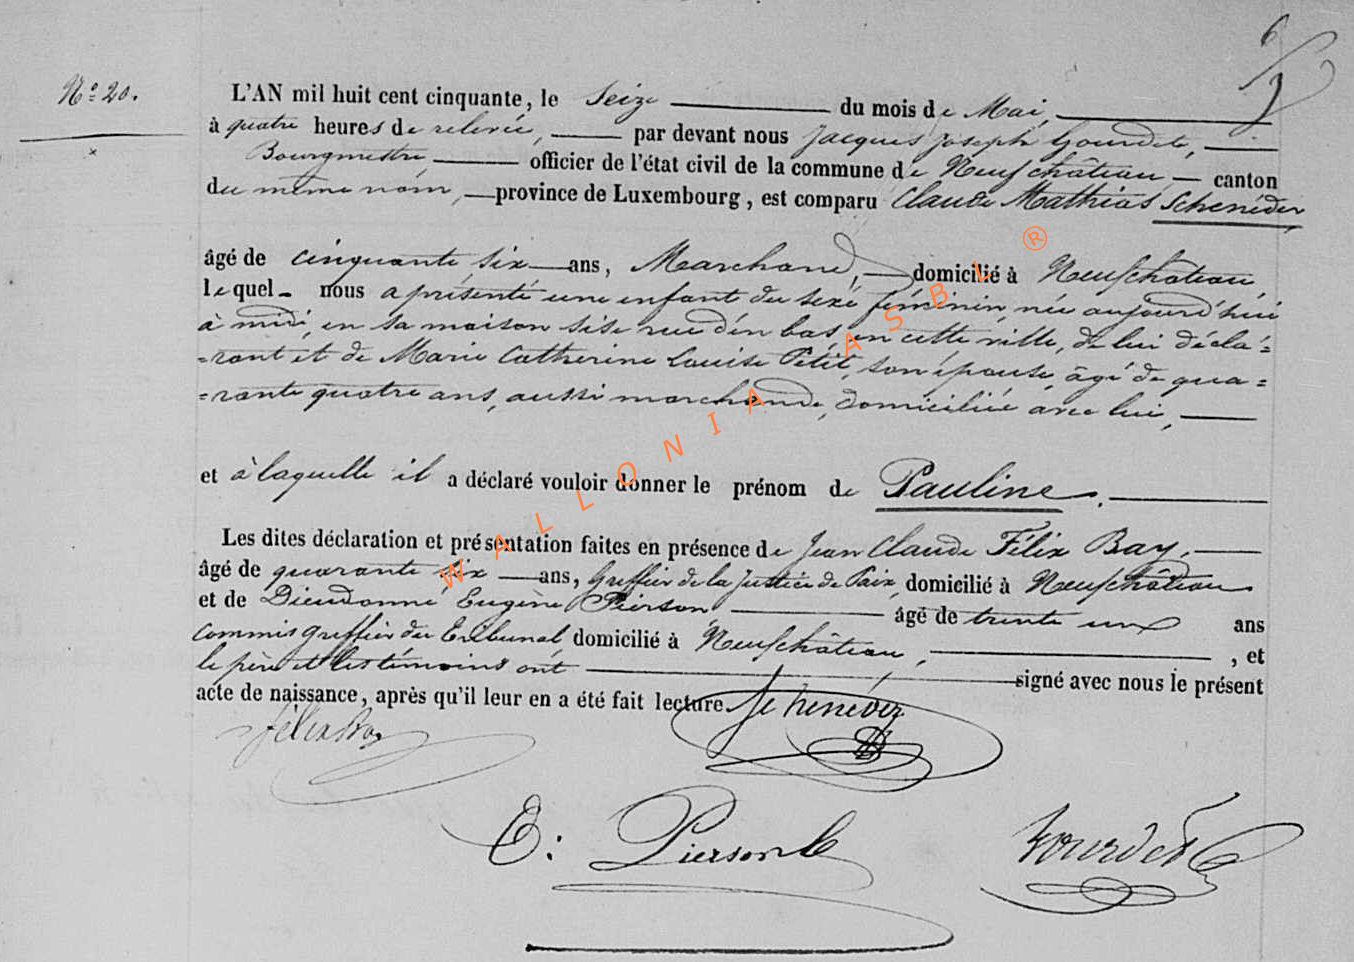 6
N.º 20.
L'AN mil huit cent cinquante, le Seize du mois de Mai,
à quatre heures de relevée, par devant nous Jacques Joseph Gourdet,
Bourgmestre officier de l'état civil de la commune de Neufchâteau canton
du même nom, province de Luxembourg, est comparu Claude Mathias Schenéder
âgé de cinquante six ans, Marchand, domicilié à Neufchâteau,
lequel nous a présenté une enfant du sexe féminin, née aujourd'hui
à midi, en sa maison sise rue d'en bas, en cette ville, de lui décla=
=rant et de Marie Catherine Louise Petit, son épouse, âgé de qua=
=rante quatre ans, aussi marchande, domiciliée avec lui,
et à laquelle il a déclaré vouloir donner le prénom de Pauline.
Les dites déclaration et présentation faites en présence de Jean Claude Félix Bay,
âgé de quarante six ans, Greffier de la Justice de Paix, domicilié à Neufchâteau
et de Dieudonné Eugène Pierson, âgé de trente un ans
Commis Greffier du Tribunal, domicilié à Neufchâteau, , et
le père et les témoins ont signé avec nous le présent
acte de naissance, après qu'il leur en a été fait lecture
WALLONIA ASBL ®
E: Pierson Gourdet